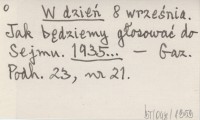 W dzień 8 września.
Jak będziemy głosować do
Sejmu. 1935... — Gaz.
Podh. 23, nr 21.